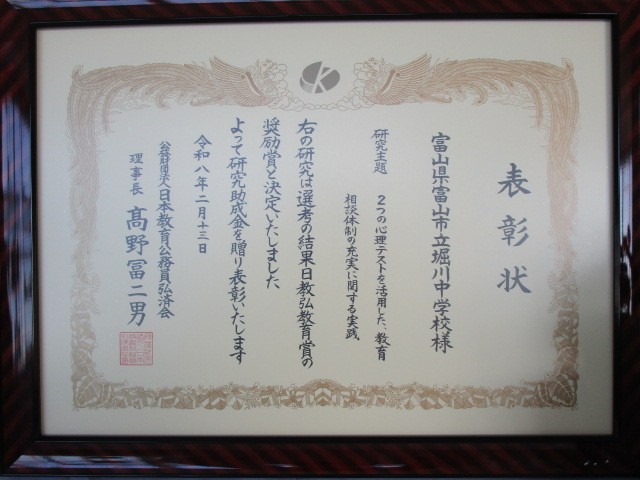 表彰状
富山県富山市立堀川中学校様
研究主題 2つの心理テストを活用した、教育
相談体制の充実に関する実践
右の研究は選考の結果日教弘教育賞の
奨励賞と決定いたしました
よって研究助成金を贈り表彰いたします
令和八年二月十三日
公益財団法人日本教育公務員弘済会
理事長 髙野冨二男